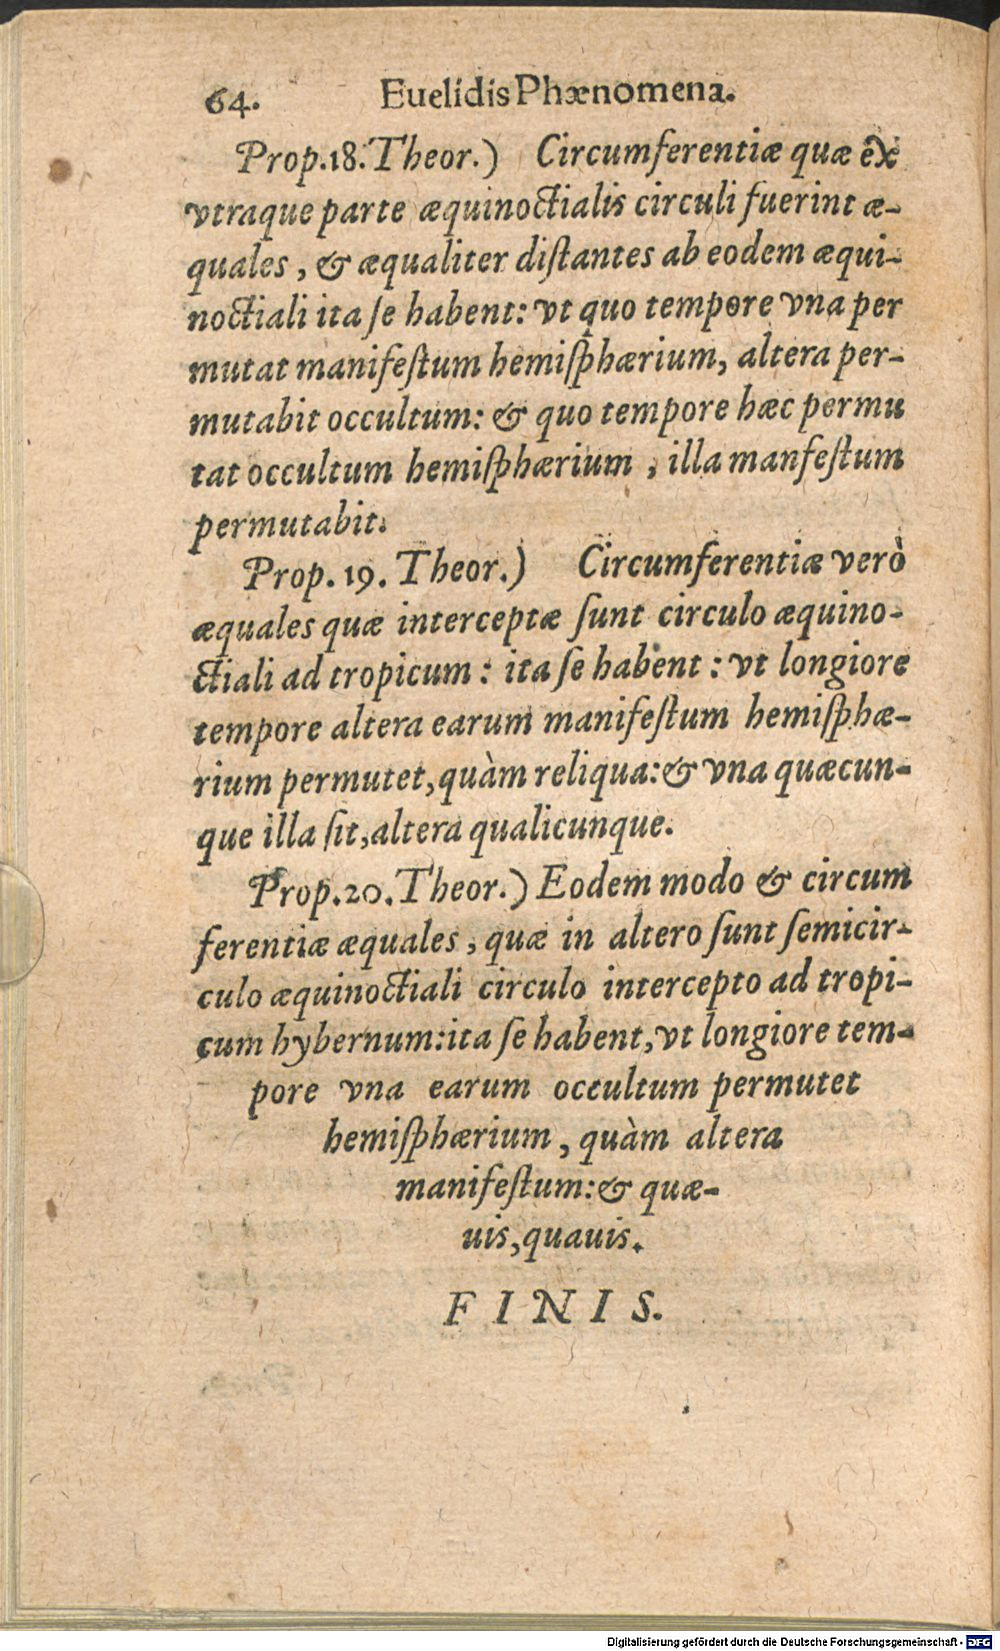 64. Euelidis Phænomena.
Prop.18. Theor.) Circumferentiæ quæ ex
vtraque parte æquinoctialis circuli fuerint æ-
quales, & æqualiter diſtantes ab eodem æqui-
noctiali ita ſe habent: vt quo tempore vna per
mutat manifeſtum hemiſphærium, altera per-
mutabit occultum: & quo tempore hæc permu
tat occultum hemiſphærium, illa manfeſtum
permutabit.
Prop. 19. Theor.) Circumferentiæ verò
æquales quæ interceptæ ſunt circulo æquino-
ctiali ad tropicum: ita ſe habent: vt longiore
tempore altera earum manifeſtum hemiſphæ-
rium permutet, quàm reliqua: & vna quæcun-
que illa ſit, altera qualicunque.
Prop.20. Theor.) Eodem modo & circum
ferentiæ æquales, quæ in altero ſunt ſemicir-
culo æquinoctiali circulo intercepto ad tropi-
cum hybernum: ita ſe habent, vt longiore tem-
pore vna earum occultum permutet
hemiſphærium, quàm altera
manifeſtum: & quæ-
uis, quauis.
FINIS.
Digitalisierung gefördert durch die Deutsche Forschungsgemeinschaft - DFG